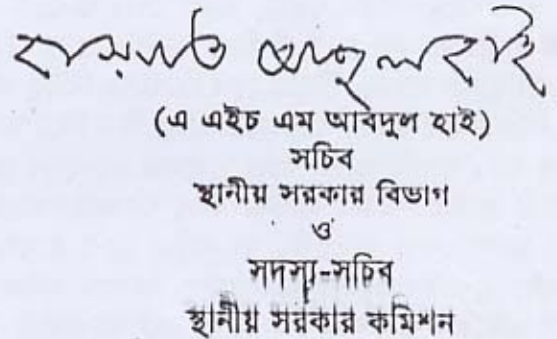 হাসনাত আবদুল হাই
(এ এইচ এম আবদুল হাই)
সচিব
স্থানীয় সরকার বিভাগ
ও
সদস্য-সচিব
স্থানীয় সরকার কমিশন